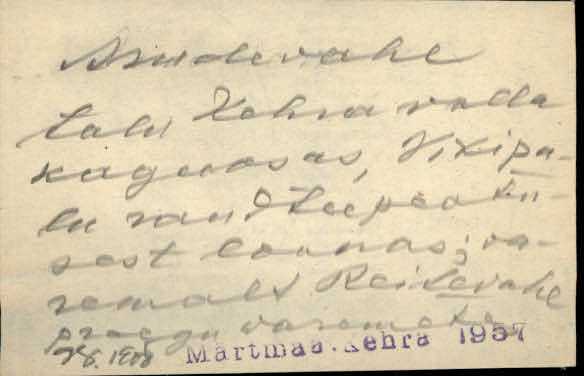 Arudevahe
talu Kehra valla
kaguosas, Vikipa-
lu raudteepeatu-
sest lõunas; va-
remalt Reitevahe
praegu varemetes
Märtmaa. Kehra 1957